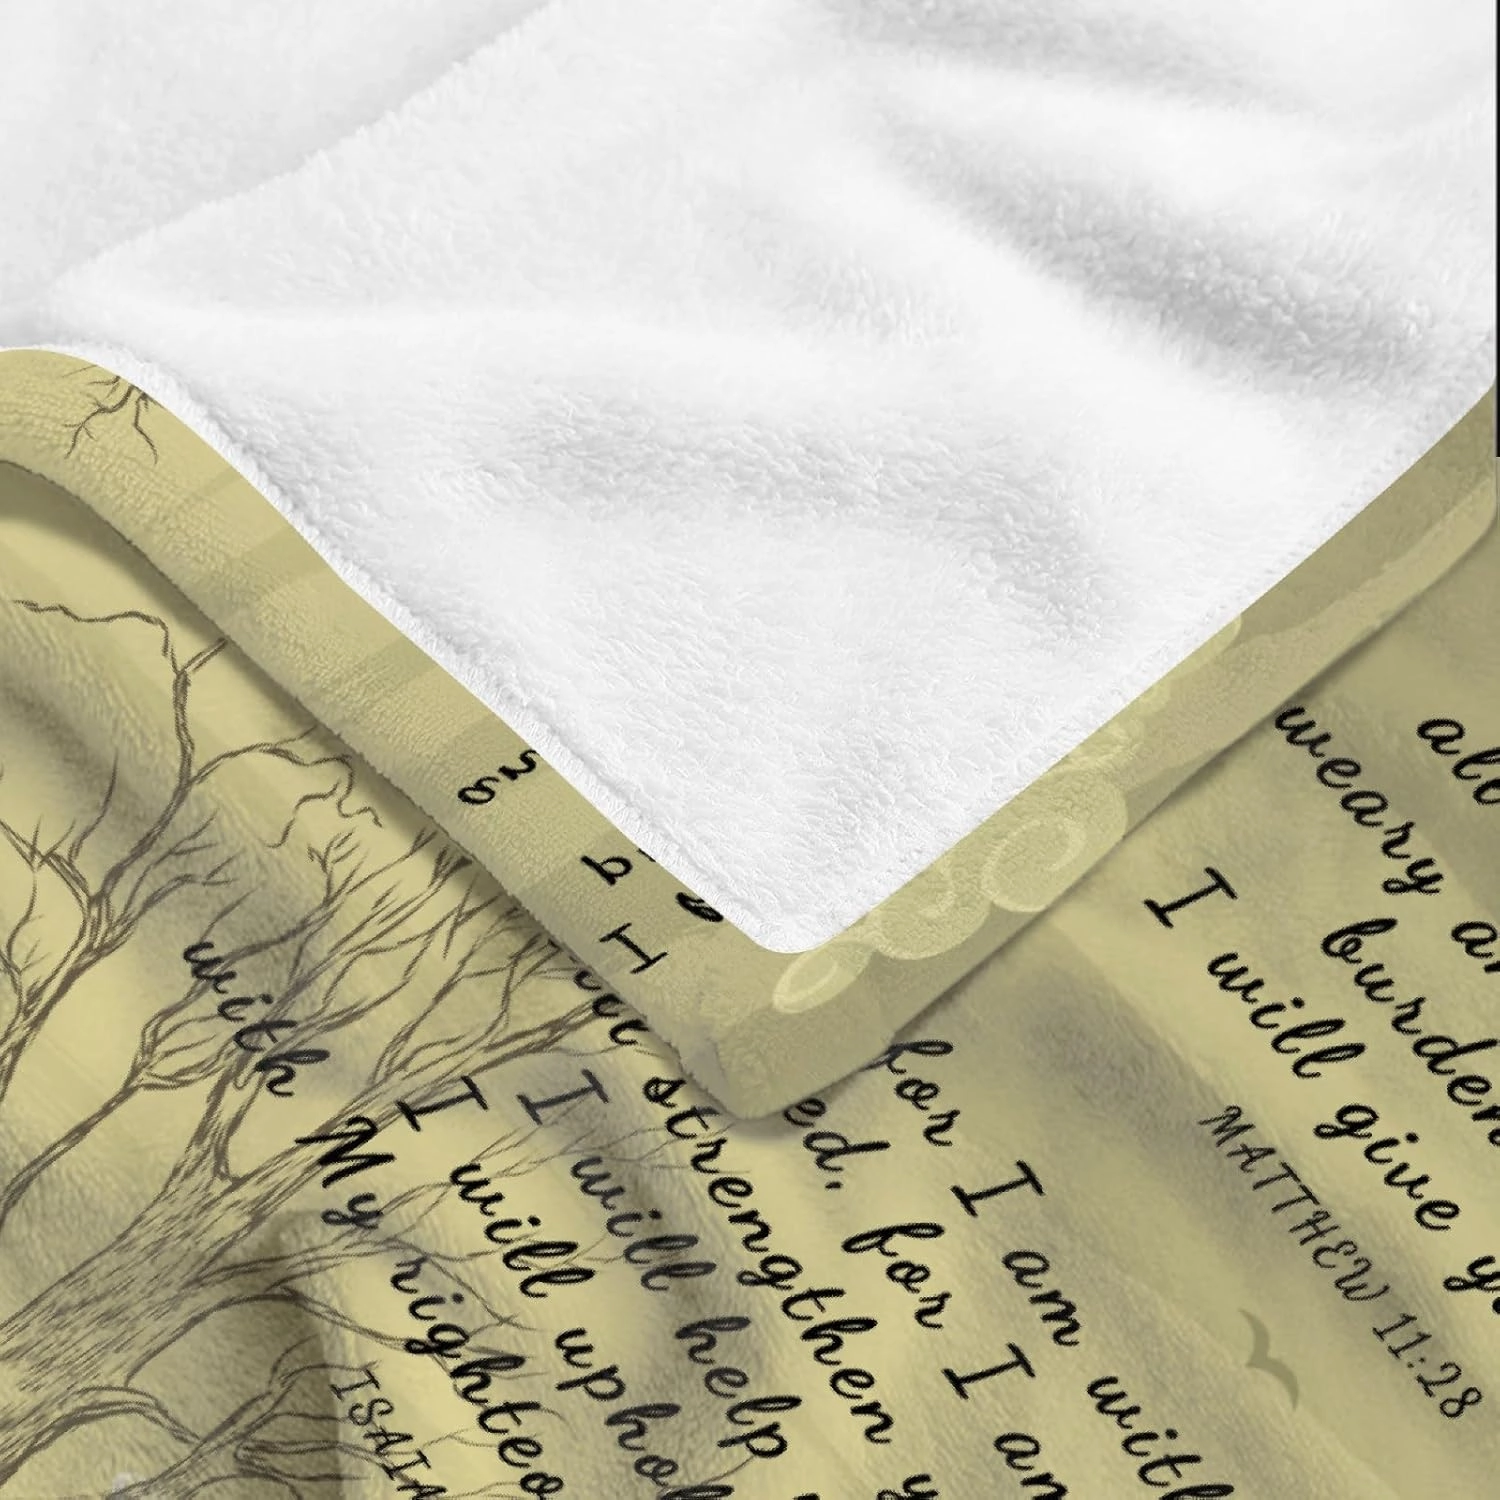 all
weary
burden
I will give
MATTHEW 11:28
for I am with
ed, for I am
strengthen
I will help
I will uphol
with My righteo
ISAIA